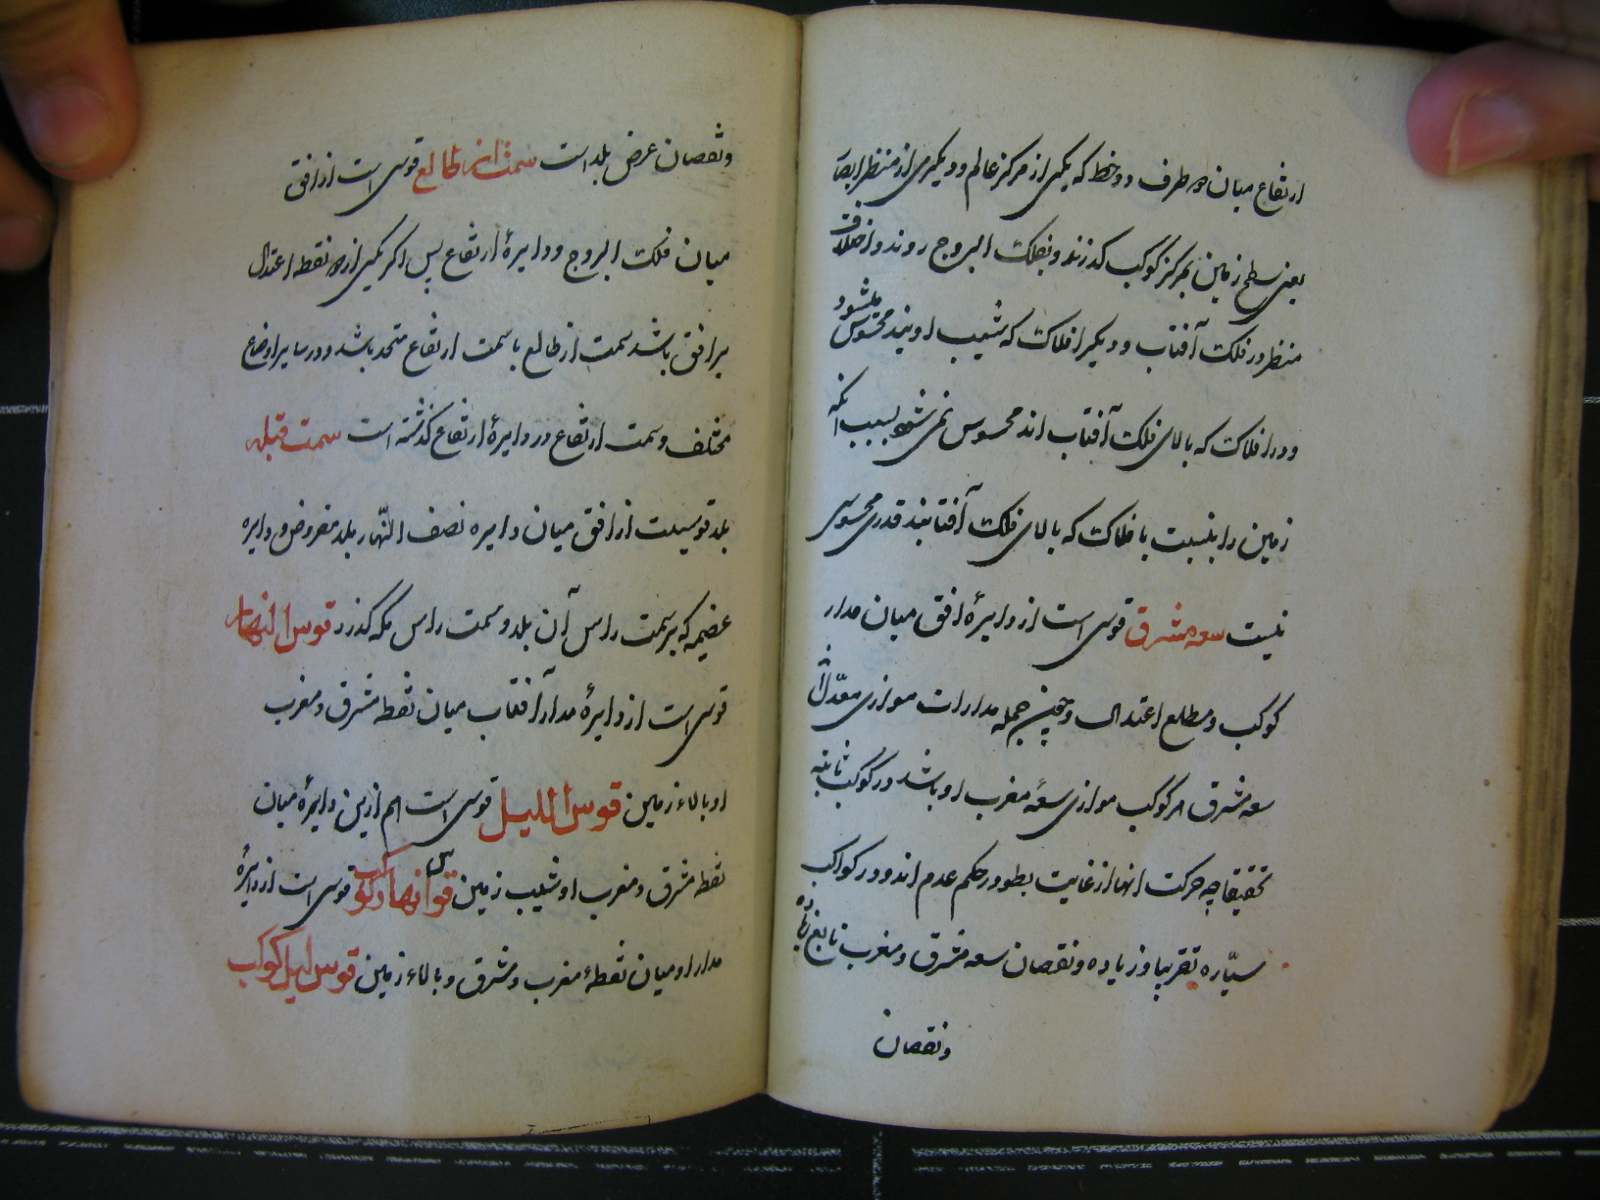 ارتفاع میان دو طرف دو خط که یکی از مرکز عالم و دیگری از منظر ابصار
یعنی سطح زمین بمرکز کوکب گذرند و بفلک البروج روند و اختلاف
منظر در فلک آفتاب و دیگر افلاک که بشیب اویند محسوس میشود
و در افلاک که بالای فلک آفتاب اند محسوس نمی شود بسبب آنکه
زمین را بنسبت با فلاک که بالای فلک آفتابند قدری محسوس
نیست سعه مشرق قوسی است از دایرهٔ افق میان مدار
کوکب و مطلع اعتدال و چون جمله مدارات موازی معدّل اند
سعه مشرق هر کوکب موازی سعهٔ مغرب او باشد در کوکب ثابته
تحقیقا چه حرکت انها از غایت بطو در حکم عدم اند و در کواکب
سیّاره تقریبا و زیاده و نقصان سعه مشرق و مغرب تابع زیاده
و نقصان
و نقصان عرض بلد است سمت از طالع قوسی است از افق
میان فلک البروج و دایرهٔ ارتفاع پس اکر یکی از دو نقطه اعتدال
بر افق باشد سمت از طالع با سمت ارتفاع متحد باشد و در سایر اوضاع
مختلف و سمت ارتفاع در دایرهٔ ارتفاع گذشته است سمت قبله
بلد قوسیست از افق میان دایره نصف النّهار بلد مفروض و دایره
عضیمه که بر سمت راس آن بلد و سمت راس مکه گذرد قوس النهار
قوسی است از دایرهٔ مدار آفتاب میان نقطه مشرق و مغرب
او بالاء زمین قوس اللیل قوسی است هم ازین دایرهٔ میان
نقطه مشرق و مغرب او شیب زمین قوس انهار کوکب قوسی است از دایرهٔ
مدار او میان نقطهٔ مغرب و مشرق و بالاء زمین قوس لیل کواکب